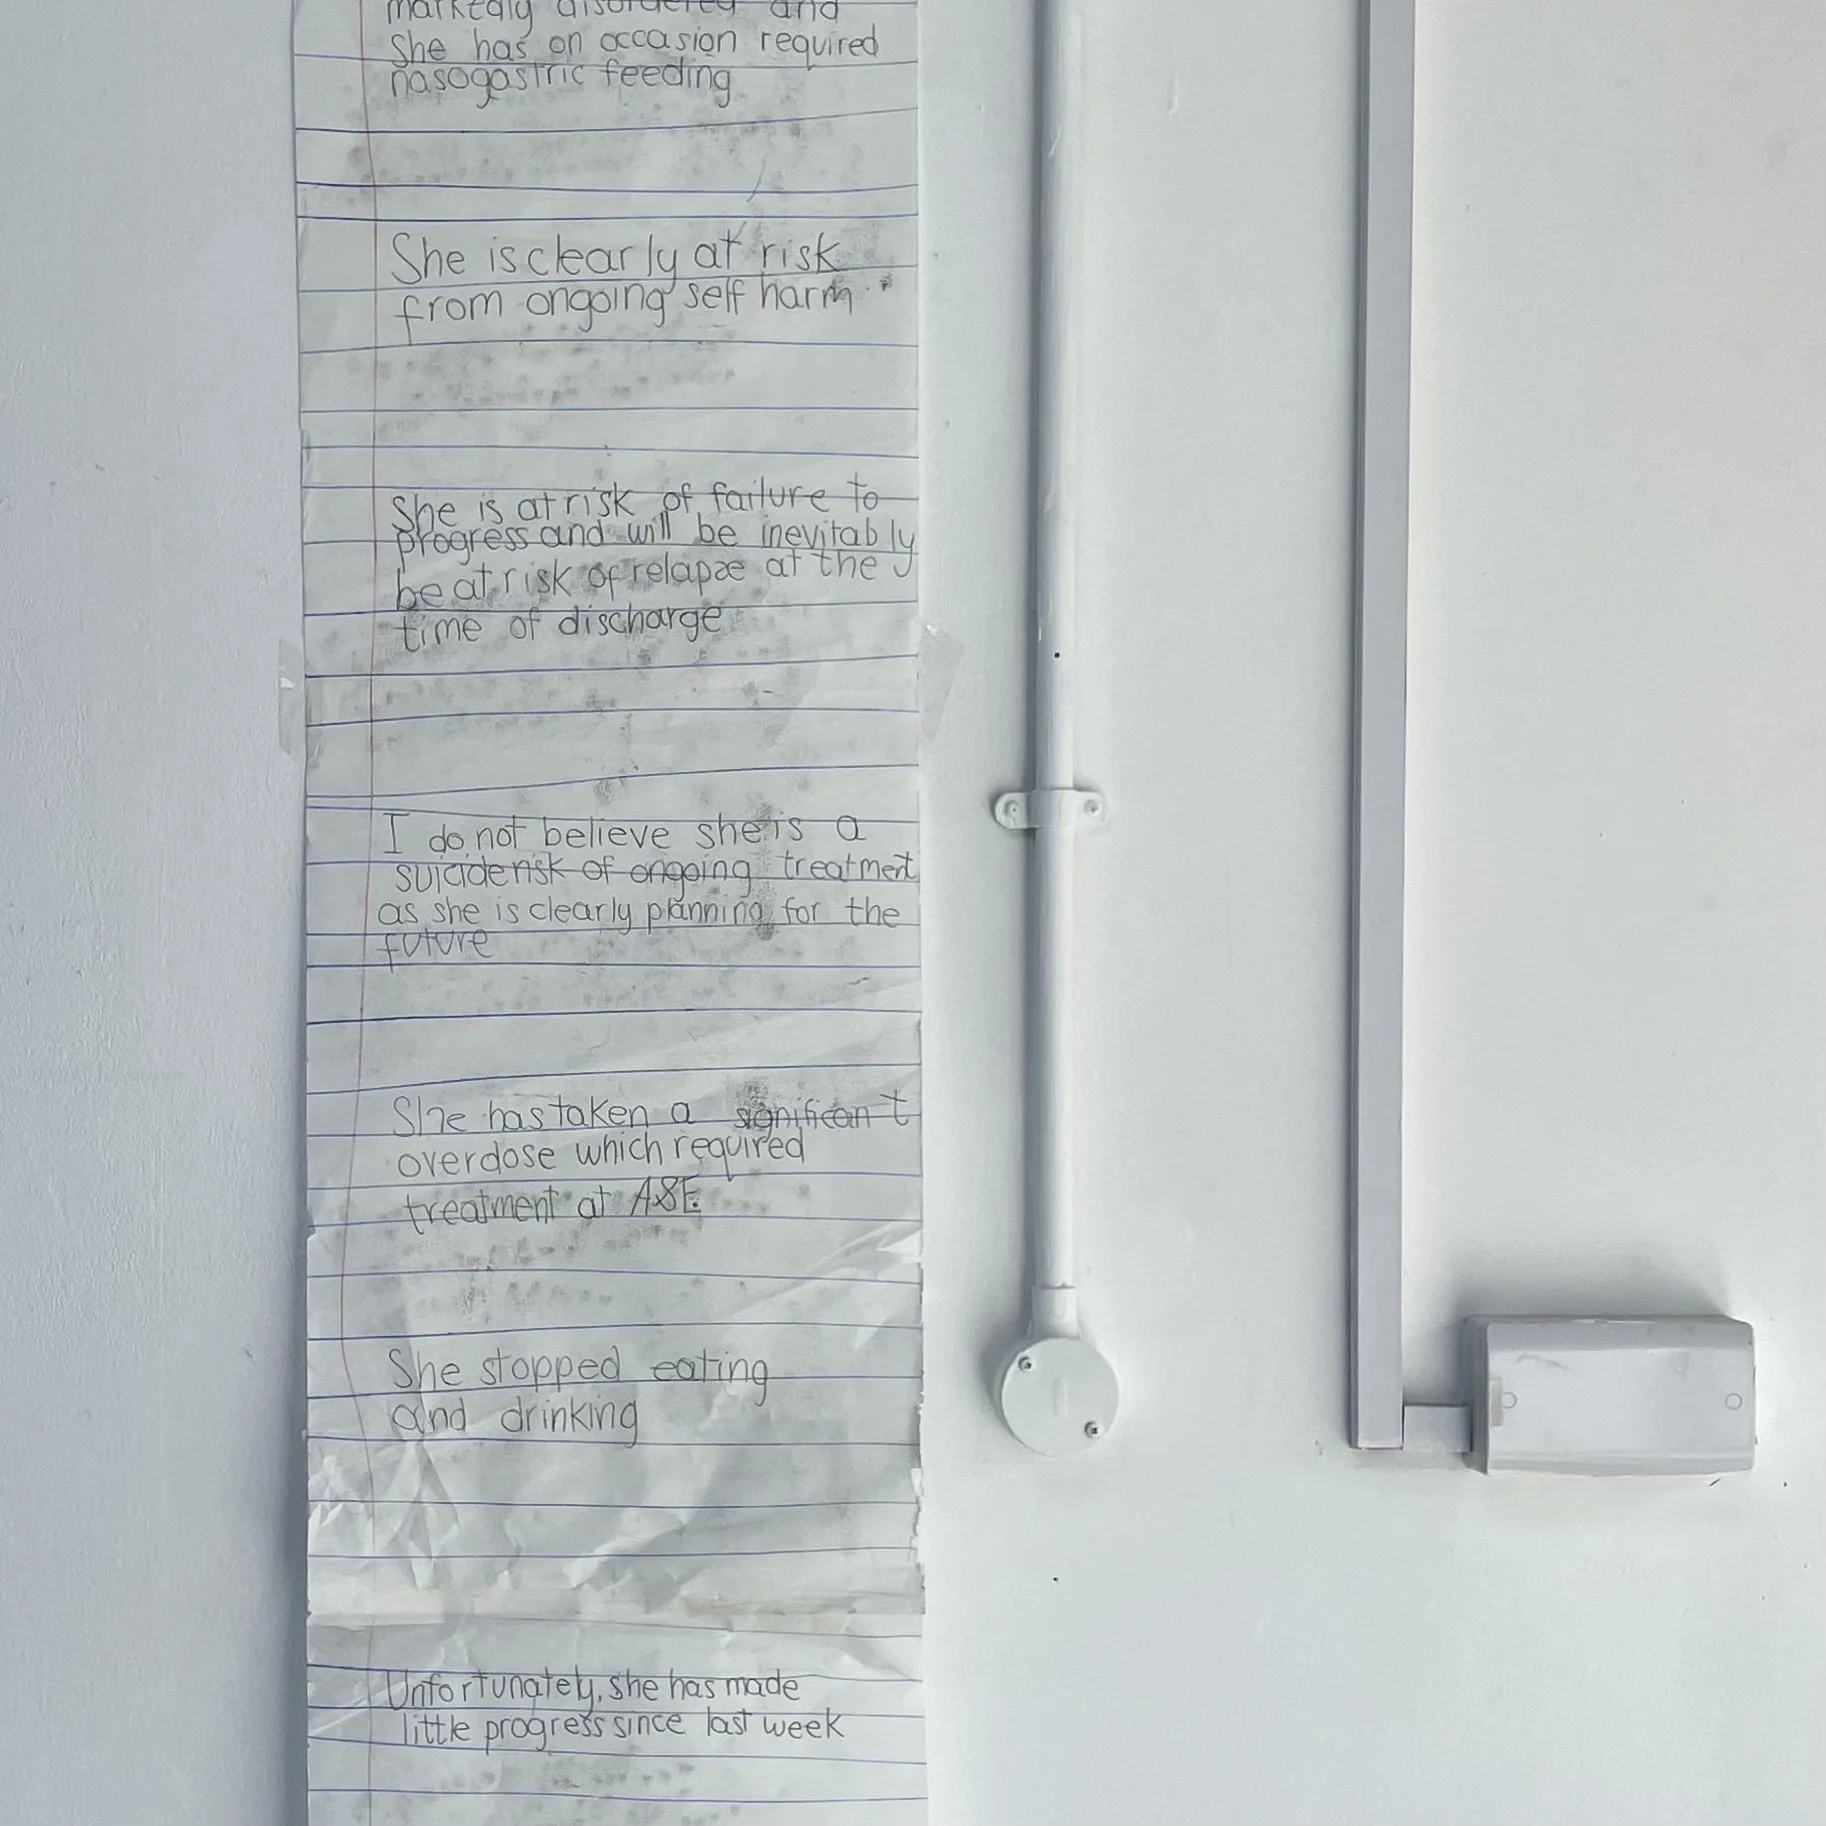 markedly disordered and
She has on occasion required
nasogastric feeding
She is clearly at risk
from ongoing self harm
She is at risk of failure to
progress and will be inevitably
be at risk of relapse at the
time of discharge
I do not believe she is a
suicide risk of ongoing treatment
as she is clearly planning for the
future
She has taken a significant
overdose which required
treatment at A&E
She stopped eating
and drinking
Unfortunately, she has made
little progress since last week